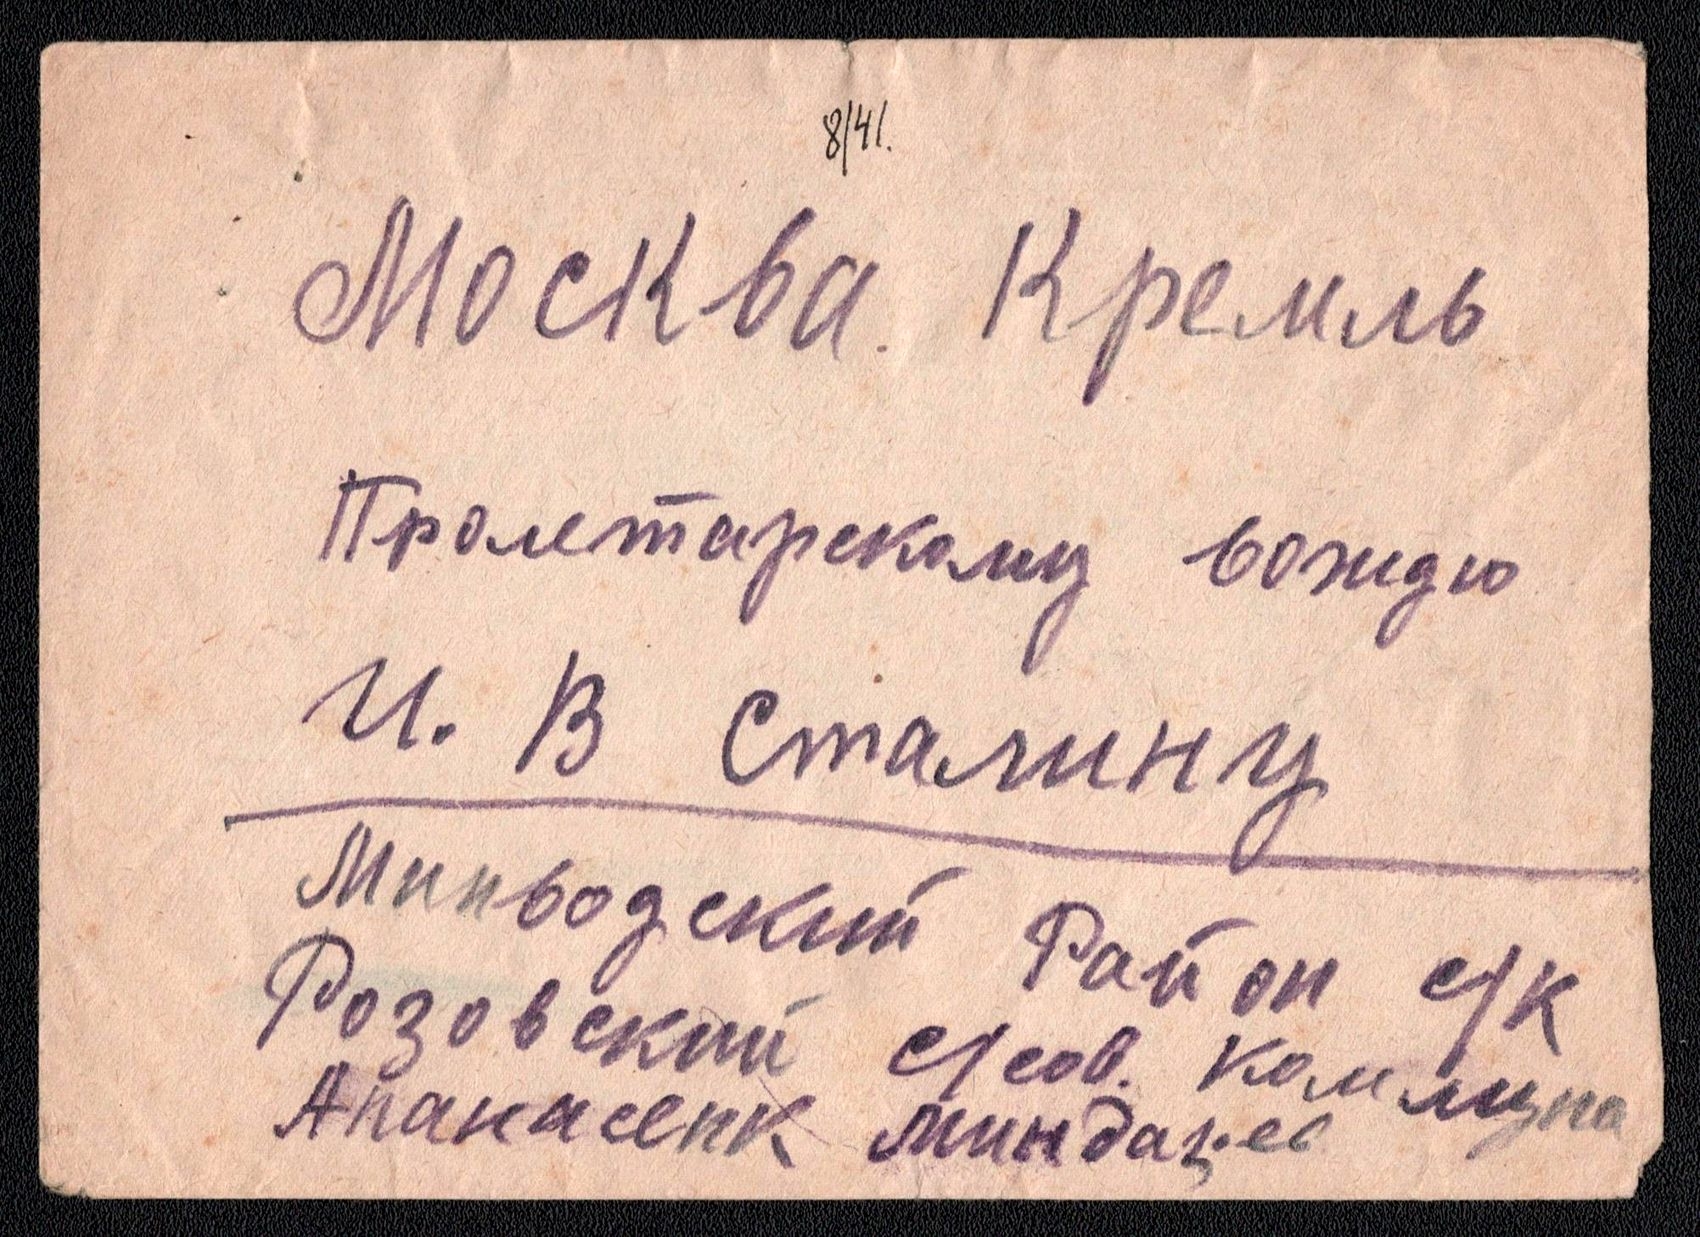 8/41.
Москва. Кремль
Пролетарскому вождю
И. В Сталину
Минводский Район с/к
Розовский с/сов. Коммуна
Апанасенк Миндацев